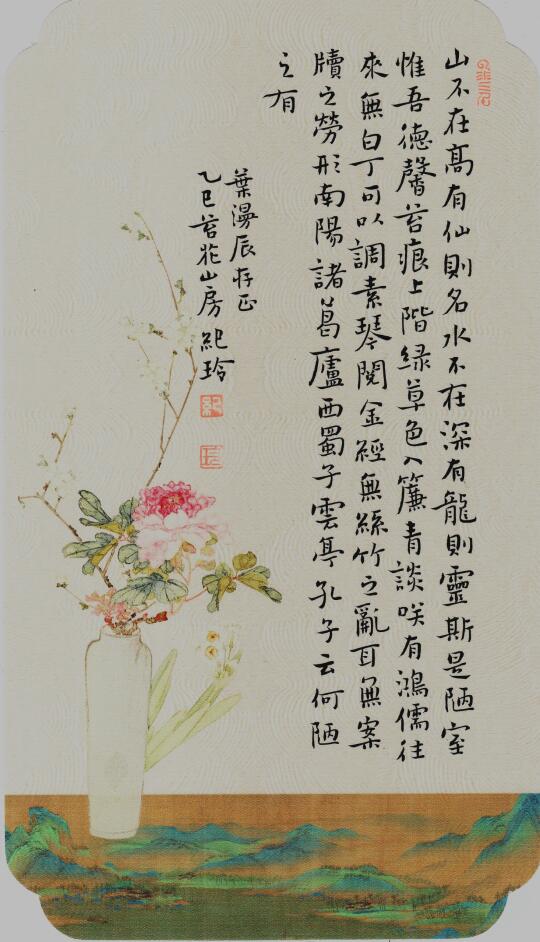 山不在髙有仙則名水不在深有龍則靈斯是陋室
惟吾德馨苔痕上階緑草色入簾青談咲有鴻儒往
來無白丁可以調素琴閱金經無絲竹之亂耳無案
牘之勞形南陽諸葛廬西蜀子雲亭孔子云何陋
之有
葉漫辰存正
乙巳苔花山房 紀玲
紀
玲